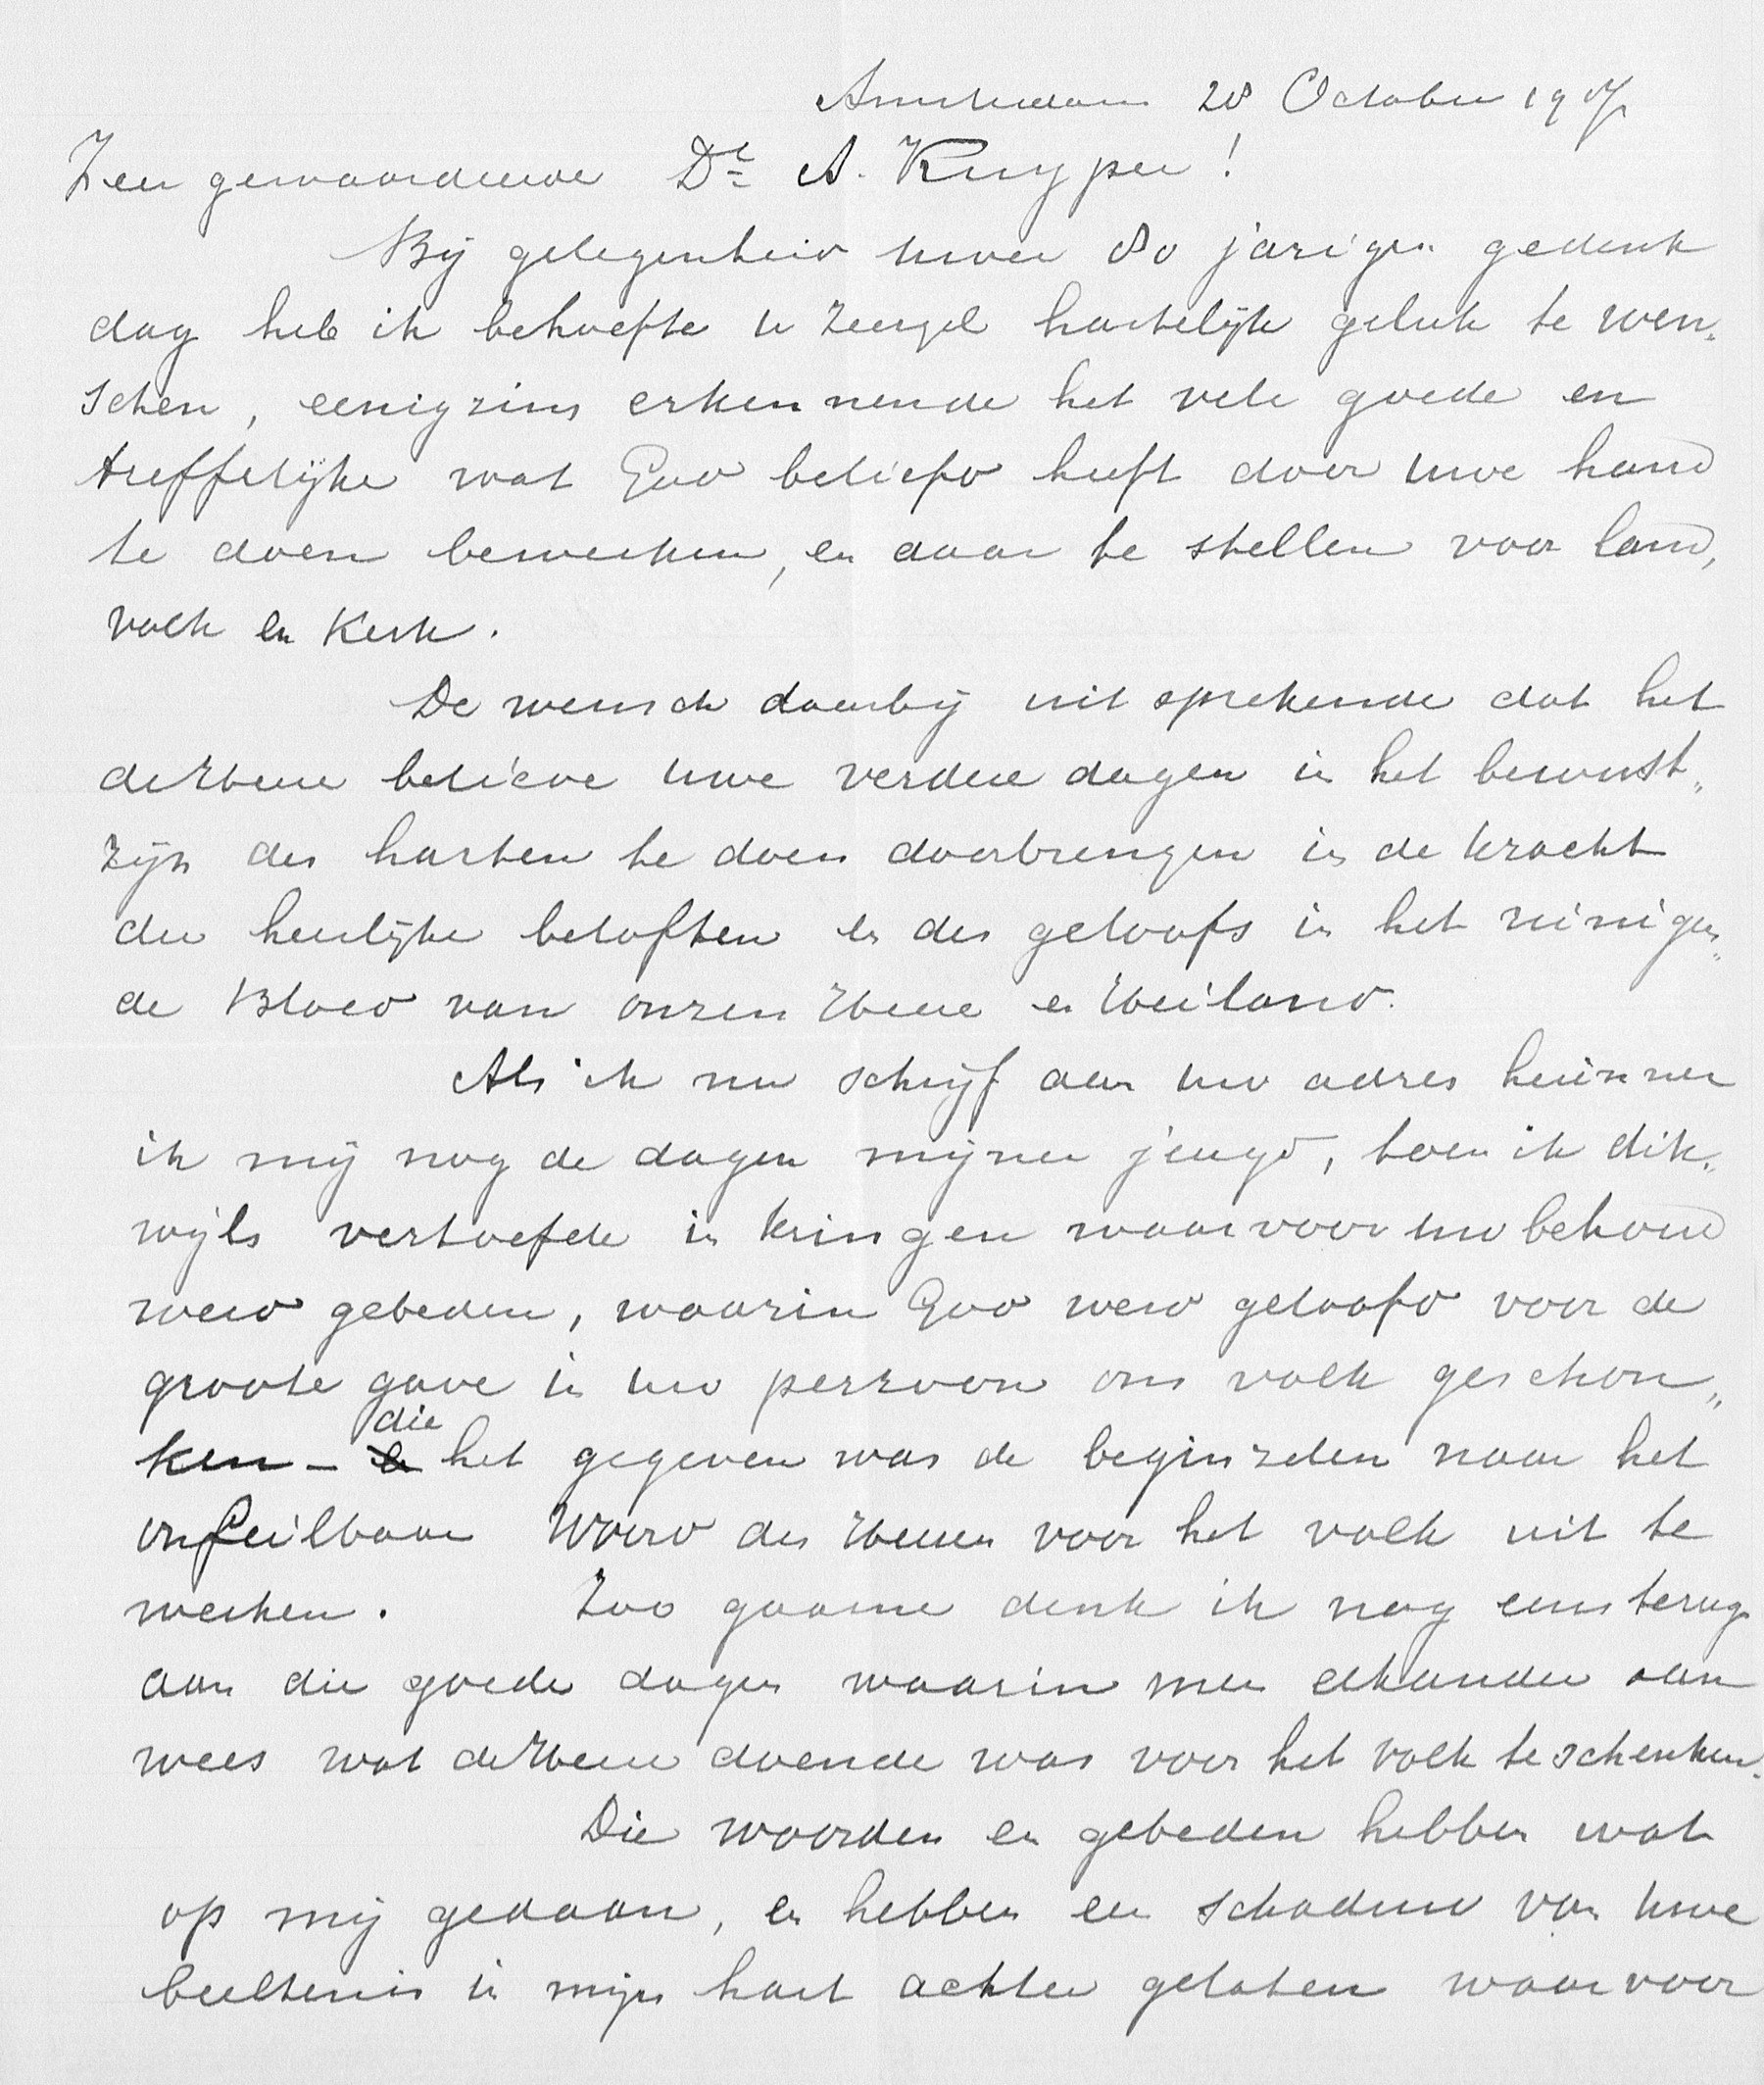 Amsterdam 28 October 1917
Zeer gewaardeerde Dr A. Kuyper!
Bij gelegenheid uwer 80 jarigen gedenk
dag heb ik behoefte u zeergel hartelijk geluk te wen„
schen, eenigzins erkennende het vele goede en
treffelijke wat God beliefd heeft door uwe hand
te doen bewerken, en daar te stellen voor land,
volk en Kerk.
De wensch daarbij uit sprekende dat het
de Heere believe uwe verdere dagen in het bewust„
zijn des harten te doen doorbrengen in de kracht
der heerlijke beloften en des geloofs in het reinigen„
de Bloed van onzen Heere en Heiland.
Als ik nu schrijf aan uw adres herinner
ik mij nog de dagen mijner jeugd, toen ik dik„
wijls vertoefde in kringen waarvoor uw behoud
werd gebeden, waarin God werd geloofd voor de
groote gave in uw persoon ons volk geschon„
ken – die het gegeven was de beginzelen naar het
onfeilbaar Woord des Heeren voor het volk uit te
werken. Zoo gaarne denk ik nog eens terug
aan die goede dagen waarin men elkander aan
wees wat de Heere doende was voor het volk te schenken.
Die woorden en gebeden hebben wat
op mij gedaan, en hebben een schaduw van uwe
beeltenis in mijn hart achter gelaten waarvoor